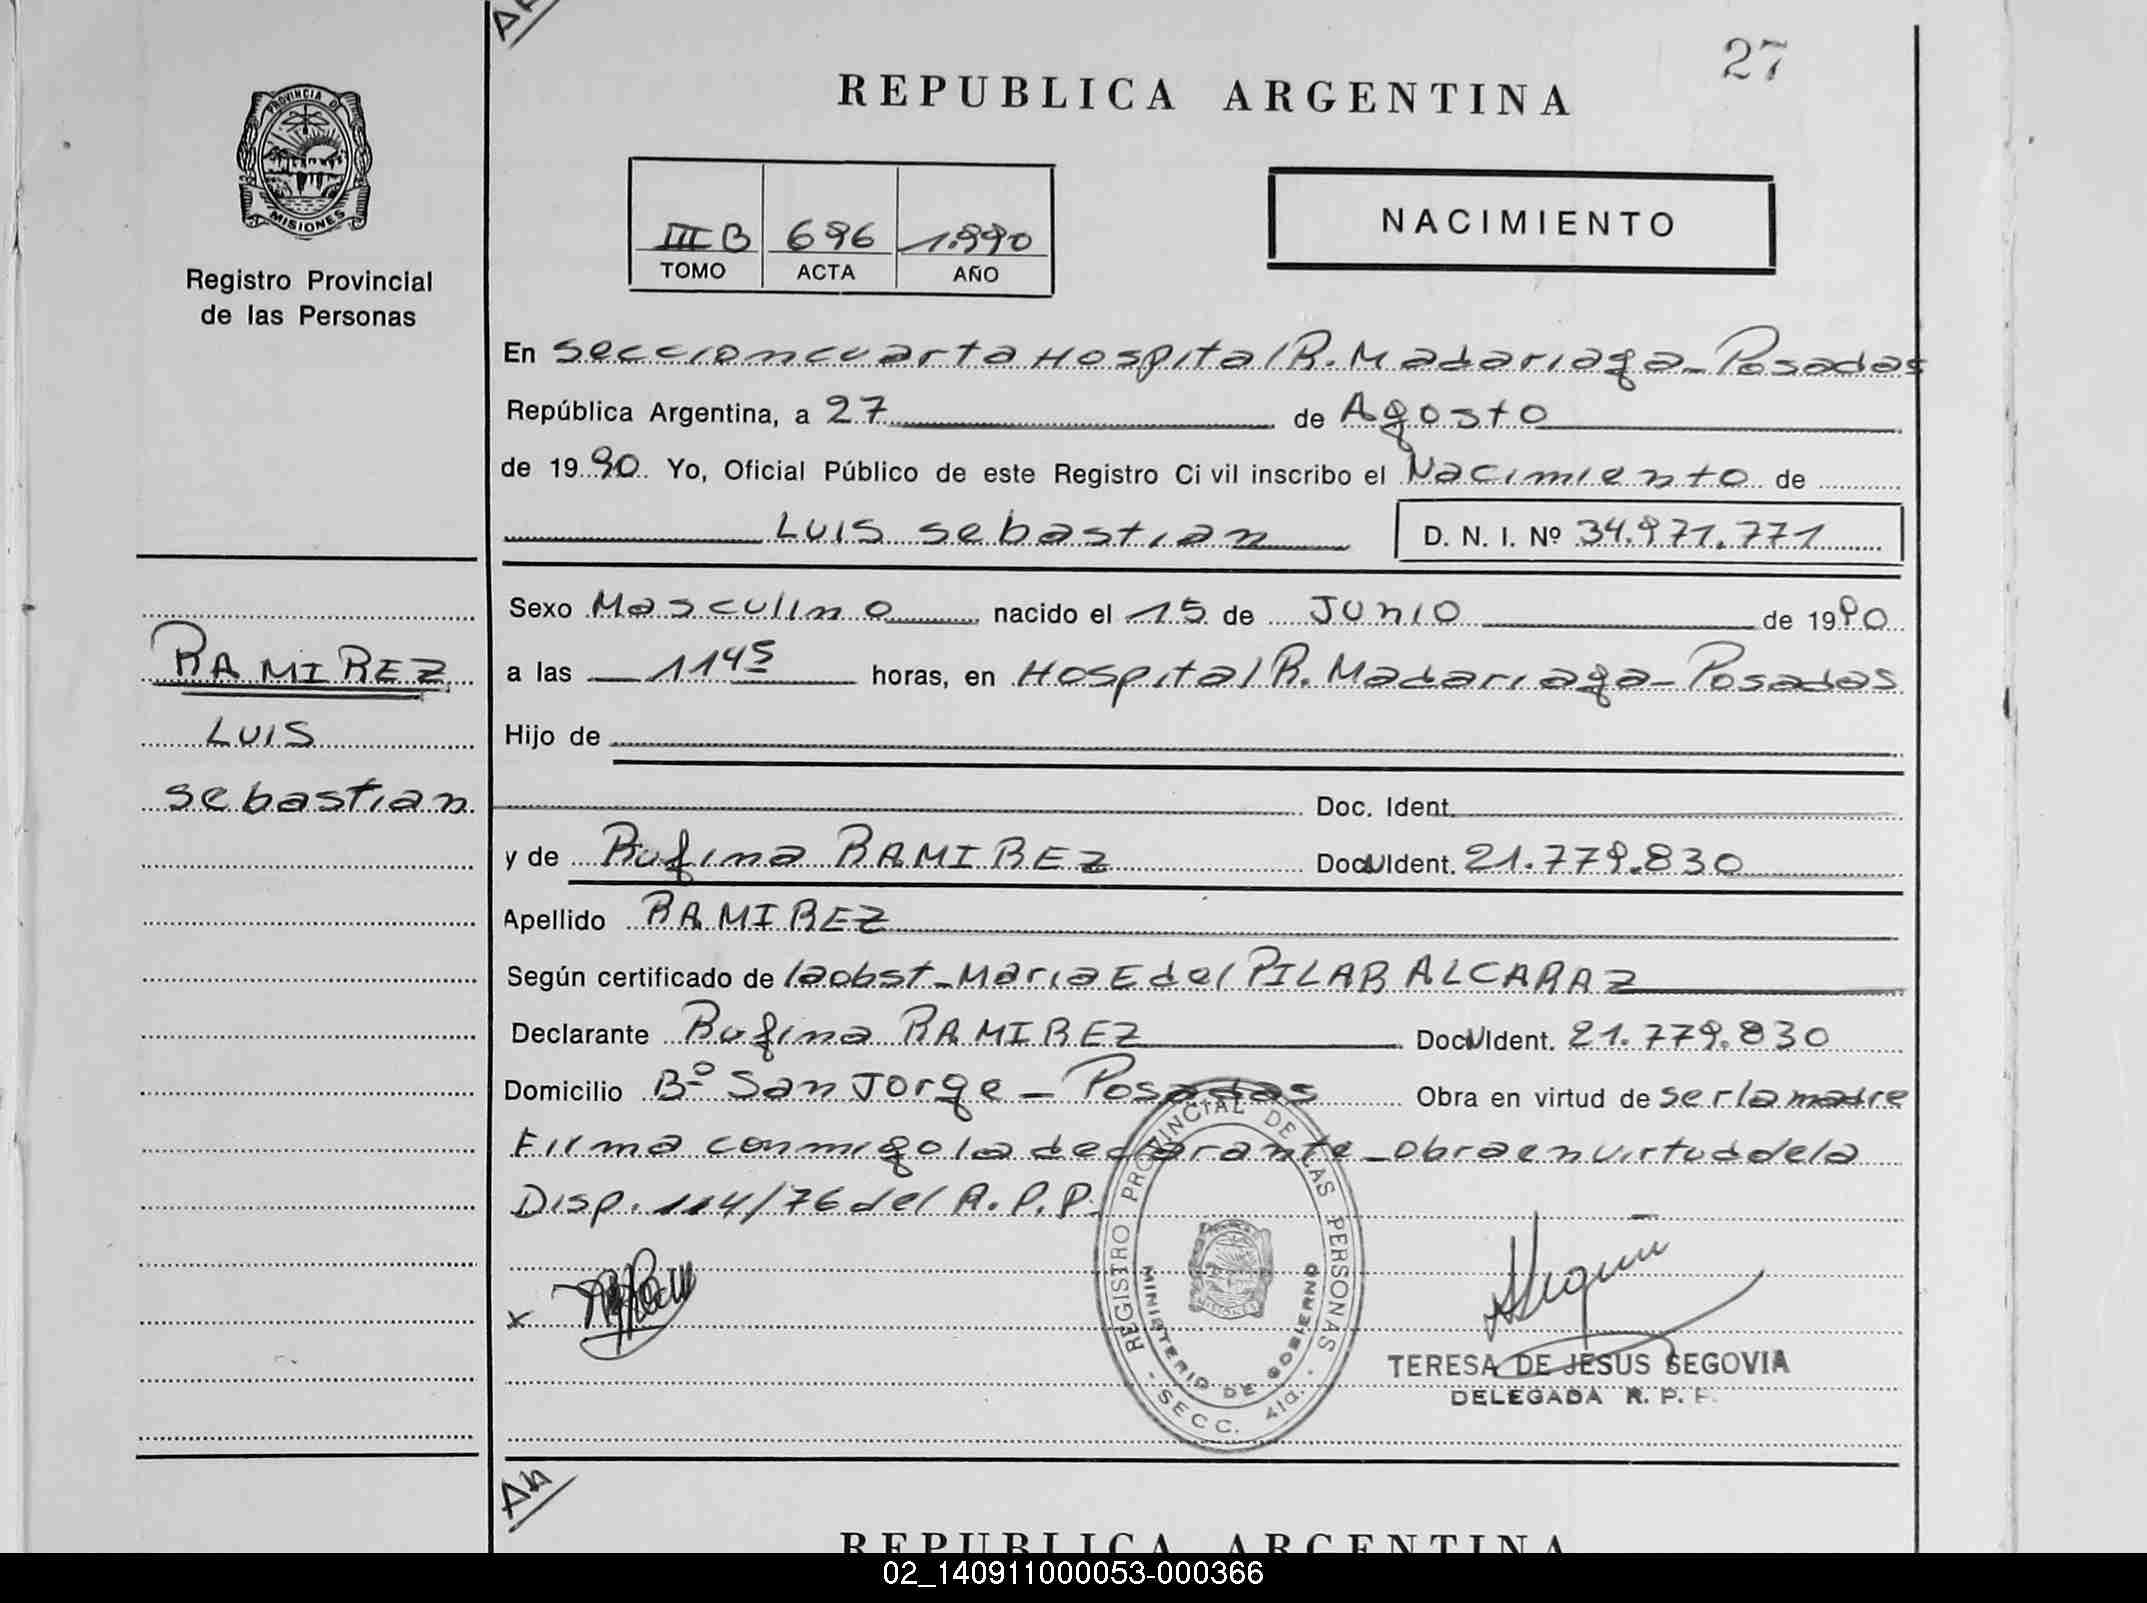 27
REPUBLICA ARGENTINA
PROVINCIA D
MISIONES
Registro Provincial
de las Personas
III B 696 1.990
TOMO ACTA AÑO
NACIMIENTO
En Seccion cuarta Hospital R. Madariaga - Posadas
República Argentina, a 27 de Agosto
de 1990 Yo, Oficial Público de este Registro Ci vil inscribo el Nacimiento de
Luis Sebastian D. N. I. Nº 34.971.771
Sexo Masculino nacido el 15 de Junio de 1990
a las 11 45 horas, en Hospital R. Madariaga - Posadas
Hijo de
Doc. Ident.
y de Rufina RAMIREZ DocU Ident. 21.779.830
Apellido RAMIREZ
Según certificado de la obst - Maria E del PILAR ALCARAZ
Declarante Rufina RAMIREZ DocU Ident. 21.779.830
Domicilio Bº San Jorge - Posadas Obra en virtud de ser la madre
Firma conmigo la declarante - obra en virtud de la
Disp. 114/76 del R.P.P.
RAMIREZ
Luis
Sebastian
x
REGISTRO PROVINCIAL DE LAS PERSONAS
MINISTERIO DE GOBIERNO
- SECC. 4ta. -
TERESA DE JESUS SEGOVIA
DELEGADA R. P. P.
REPUBLICA ARGENTINA
02_140911000053-000366